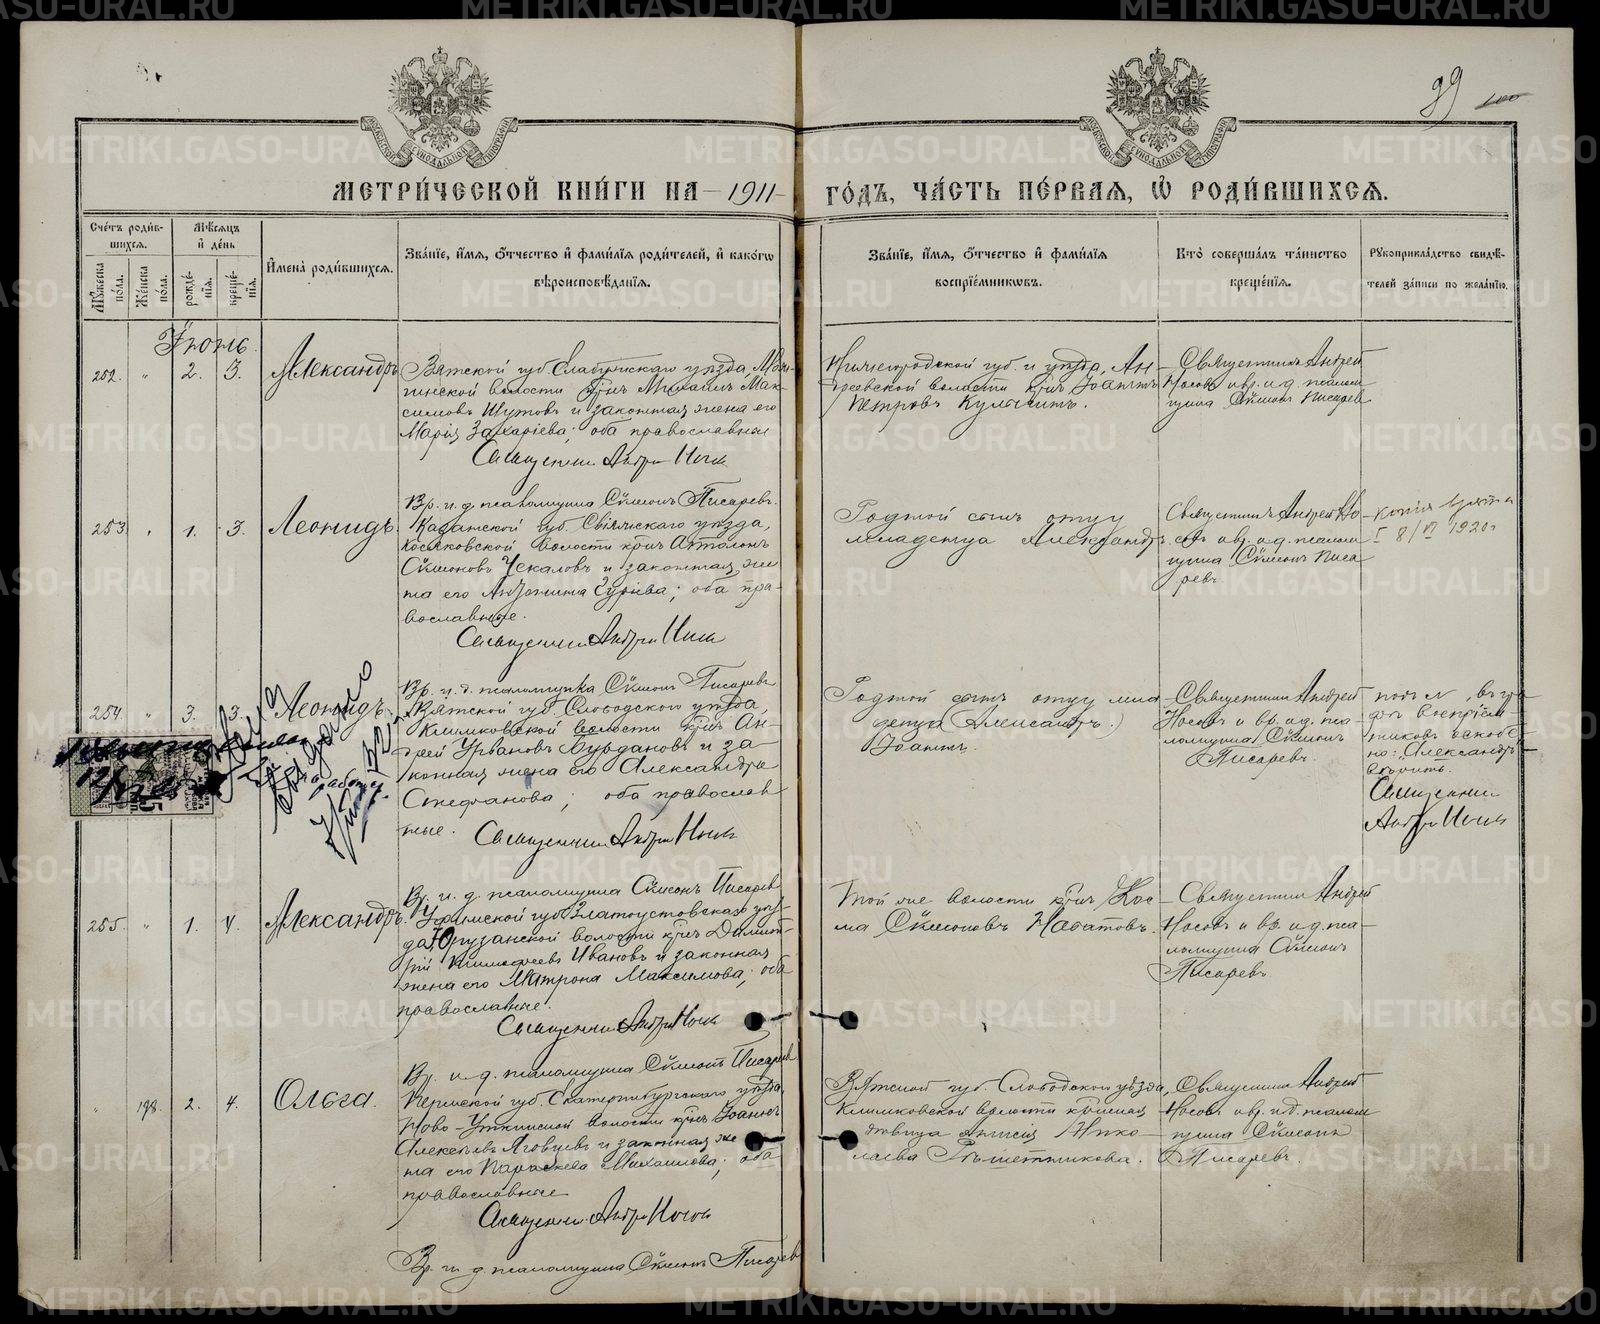 METRIKI.GASO-URAL.RU
99
100
МЕТРИ́ЧЕСКОЙ КНИ́ГИ НА 1911
ГО́ДЪ, ЧА́СТЬ ПЕ́РВАЯ, Ѡ҆ РОДИ́ВШИХСЯ.
Сче́тъ роди́в-
шихся.
Мꙋ́жеска по́ла.
Же́нска по́ла.
Мѣ́сяцъ
и҆ де́нь
рожде́-
нїя.
креще́-
нїя.
И҆мена̀ роди́вшихся.
Зва́нїе, и҆́мя, ѻ҆́тчество и҆ фами́лїя роди́телей, и҆ како́гѡ
вѣроисповѣ́данїя.
Зва́нїе, и҆́мя, ѻ҆́тчество и҆ фами́лїя
воспрїе́мникѡвъ.
Кто̀ соверша́лъ та́инство
креще́нїя.
Рꙋкоприкла́дство свидѣ́-
телей за́писи по жела́нїю.
Іюнь
252. " 2. 3. Александръ
Вятской губ. Елабужскаго уѣзда, Мо-
жинской волости кр-нъ Михаилъ Мак-
симовъ Шутовъ и законная жена его
Марія Захаріева; оба православные
Священникъ Андрей Носовъ
Нижегородской губ. и уѣзда, Ан-
волости кр-нъ Іоаннъ
Петровъ
Священникъ Андрей
Носовъ и вр. и. д. псалом-
щика Сѵмеонъ Писаревъ
Вр. и. д. псаломщика Сѵмеонъ Писаревъ.
253. " 1. 3. Леонидъ.
Казанской губ. Свіяжскаго уѣзда,
волости кр-нъ Антонъ
Сѵмеоновъ Ускаловъ и законная же-
на его Антонина Гуріева; оба пра-
вославные.
Священникъ Андрей Носовъ
Родной сынъ отцу
младенца Александръ
Священникъ Андрей Но-
совъ и вр. и. д. псалом-
щика Сѵмеонъ Писа-
ревъ.
копія
8/VI 1920 г
Вр. и. д. псаломщика Сѵмеонъ Писаревъ
254. " 3. 3. Леонидъ.
Вятской губ. Слободского уѣзда,
Климковской волости кр-нъ Ан-
дрей Урвановъ Бурдановъ и за-
конная жена его Александра
Стефанова; оба православ-
ные.
Священникъ Андрей Носовъ
Родной сынъ отцу мла-
денца (Александръ.)
Іоаннъ.
Священникъ Андрей
Носовъ и вр. и. д. пса-
ломщика Сѵмеонъ
Писаревъ.
подъ № въ гра-
фѣ воспріем-
никовъ въ скоб-
но: Александръ
вѣрить.
Священникъ
Андрей Носовъ
Вр. и. д. псаломщика Сѵмеонъ Писаревъ
255. " 1. 4. Александръ.
Уфимской губ. Златоустовскаго уѣз-
да, Юрузанской волости кр-нъ Димит-
рій Тимофеевъ Ивановъ и законная
жена его Матрона Максимова; оба
православные.
Священникъ Андрей Носовъ
Той же волости кр-нъ Кос-
ма Сѵмеоновъ Набатовъ.
Священникъ Андрей
Носовъ и вр. и. д. пса-
ломщика Сѵмеонъ
Писаревъ
Вр. и. д. псаломщика Сѵмеонъ Писаревъ
" 198. 2. 4. Ольга.
Пермской губ. Екатеринбургскаго уѣзда,
Ново-Уткинской волости кр-нъ Іоаннъ
Алексѣевъ Яговцевъ и законная же-
на его Параскева Михаилова; оба
православные
Священникъ Андрей Носовъ
Вятской губ. Слободского уѣзда,
Климковской волости крестьян.
дѣвица Анисія Нико-
лаева Рѣшетникова.
Священникъ Андрей
Носовъ и вр. и. д. псалом-
щика Сѵмеонъ
Писаревъ.
Вр. и. д. псаломщика Сѵмеонъ Писаревъ